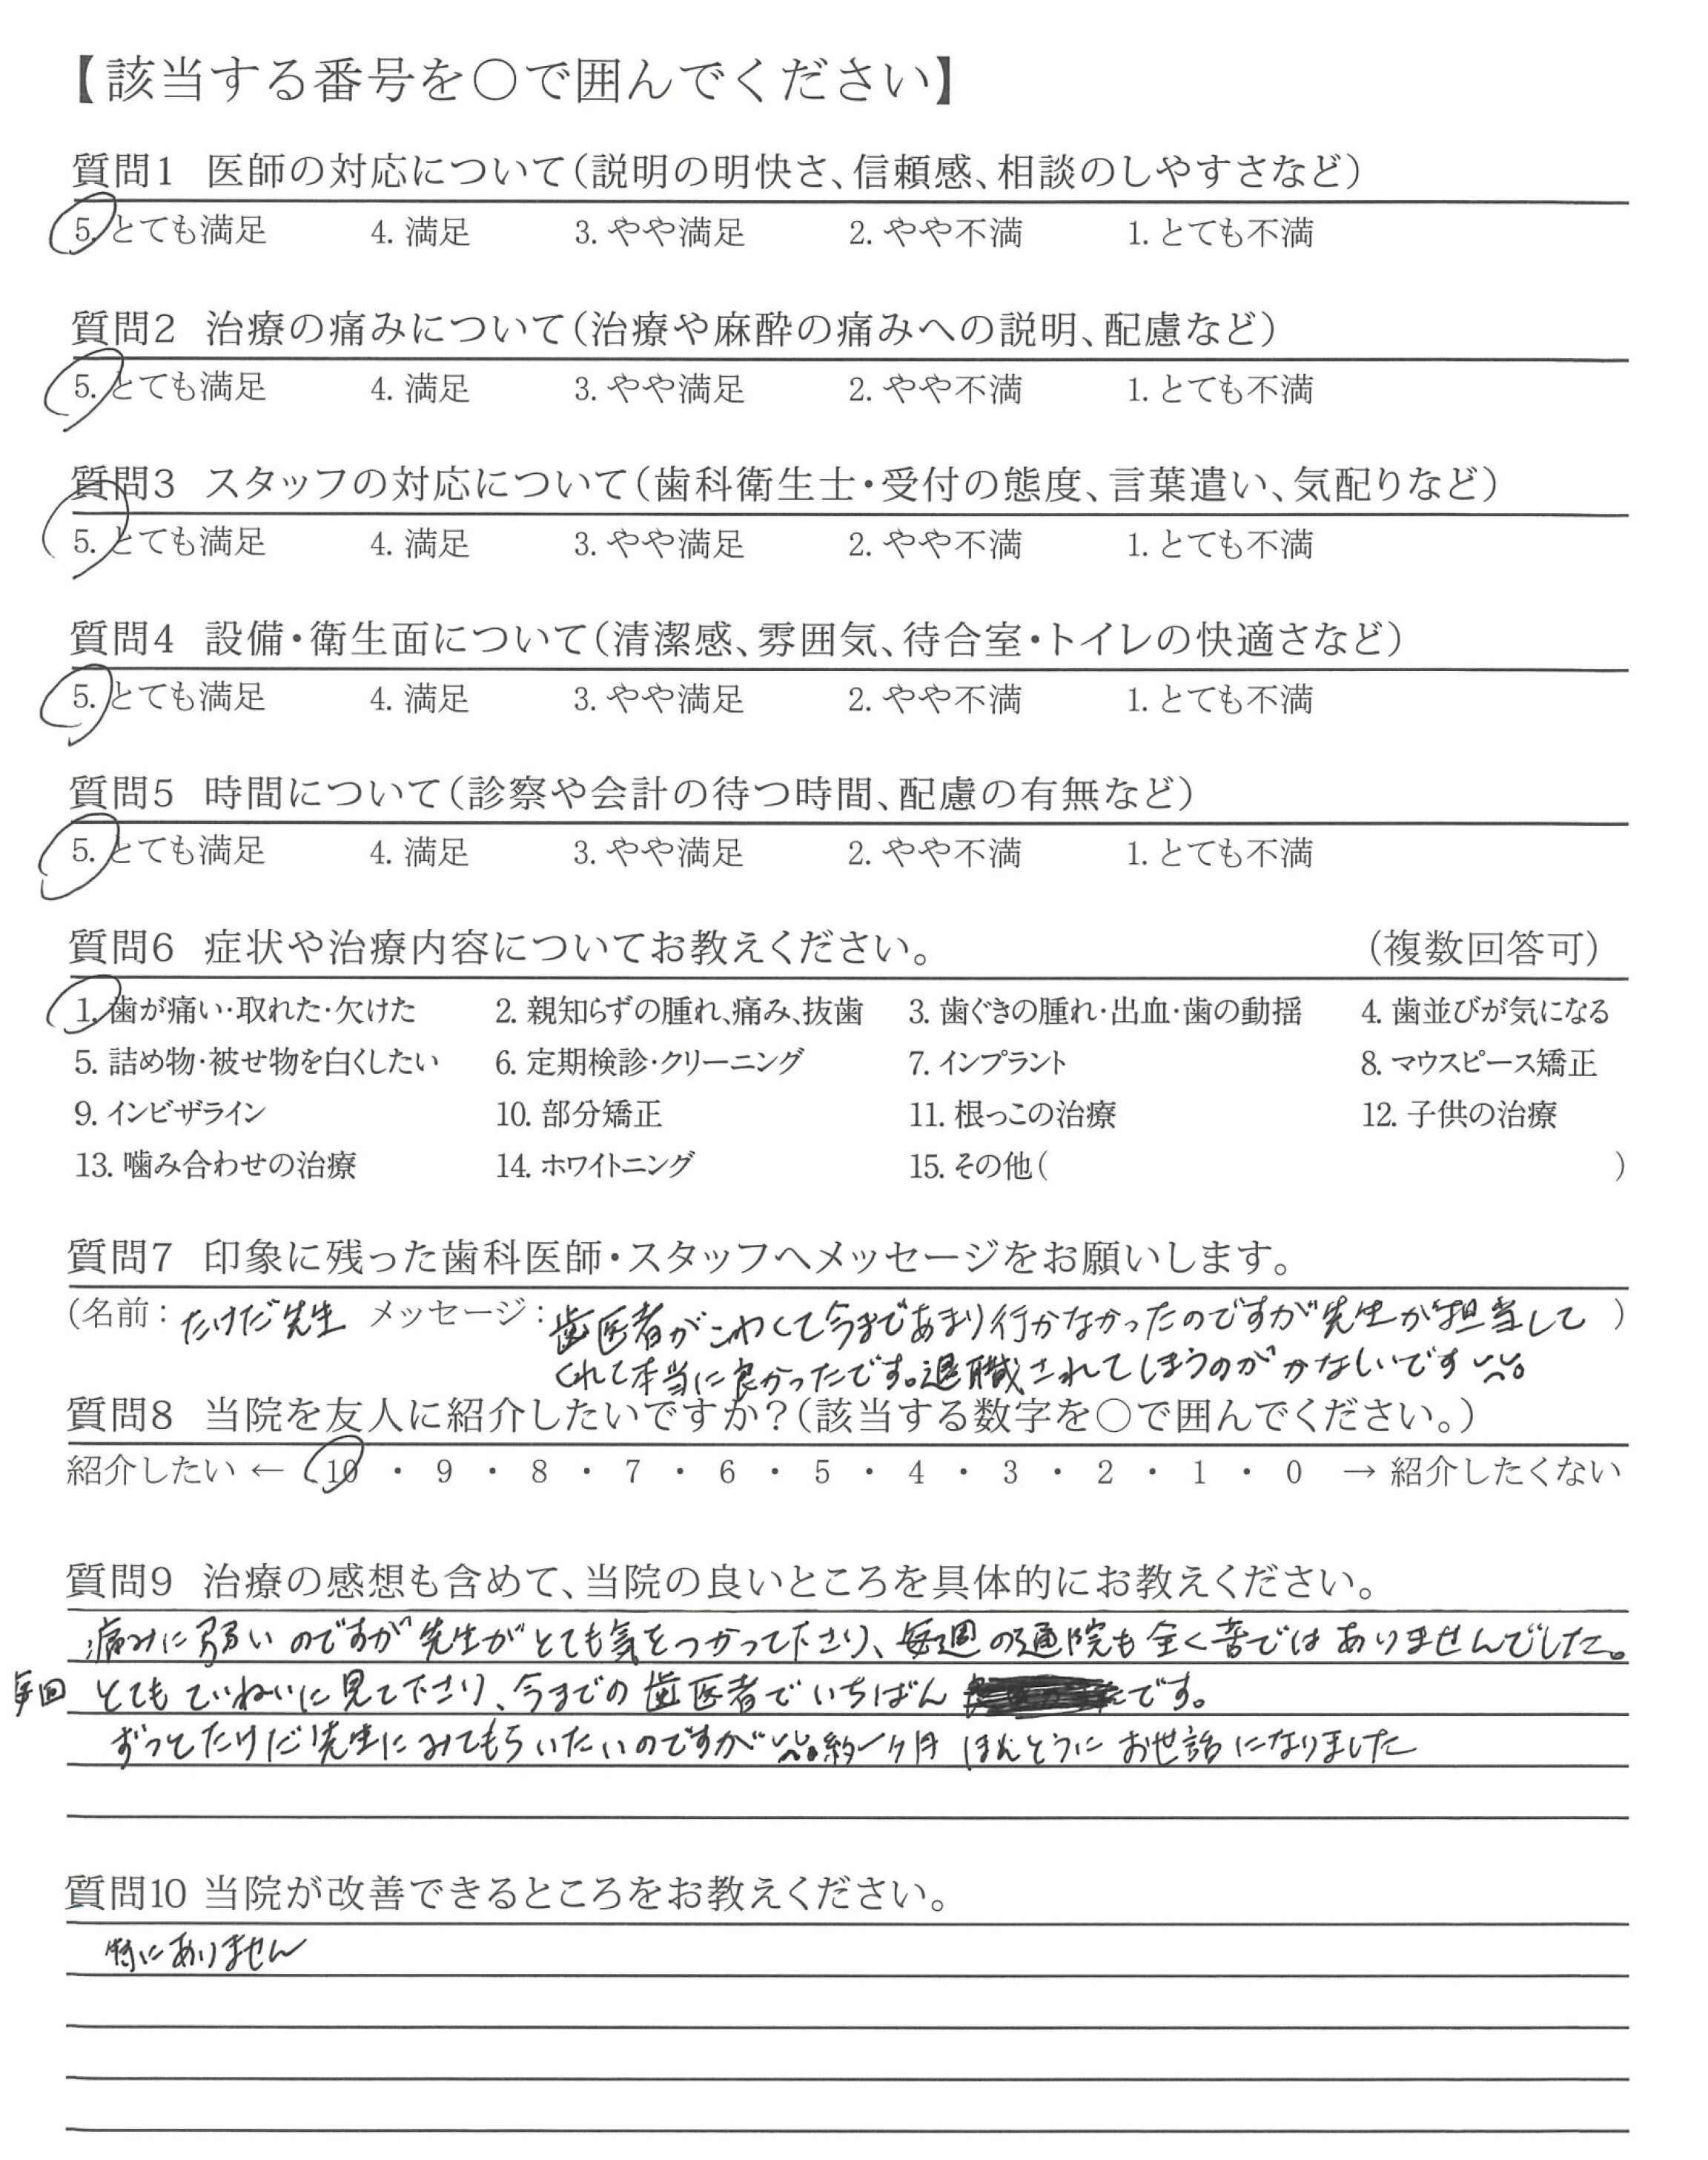 【該当する番号を〇で囲んでください】
質問1 医師の対応について(説明の明快さ、信頼感、相談のしやすさなど)
5. とても満足 4. 満足 3. やや満足 2. やや不満 1. とても不満
質問2 治療の痛みについて(治療や麻酔の痛みへの説明、配慮など)
5. とても満足 4. 満足 3. やや満足 2. やや不満 1. とても不満
質問3 スタッフの対応について(歯科衛生士・受付の態度、言葉遣い、気配りなど)
5. とても満足 4. 満足 3. やや満足 2. やや不満 1. とても不満
質問4 設備・衛生面について(清潔感、雰囲気、待合室・トイレの快適さなど)
5. とても満足 4. 満足 3. やや満足 2. やや不満 1. とても不満
質問5 時間について(診察や会計の待つ時間、配慮の有無など)
5. とても満足 4. 満足 3. やや満足 2. やや不満 1. とても不満
質問6 症状や治療内容についてお教えください。 (複数回答可)
1. 歯が痛い・取れた・欠けた 2. 親知らずの腫れ、痛み、抜歯 3. 歯ぐきの腫れ・出血・歯の動揺 4. 歯並びが気になる
5. 詰め物・被せ物を白くしたい 6. 定期検診・クリーニング 7. インプラント 8. マウスピース矯正
9. インビザライン 10. 部分矯正 11. 根っこの治療 12. 子供の治療
13. 噛み合わせの治療 14. ホワイトニング 15. その他( )
質問7 印象に残った歯科医師・スタッフへメッセージをお願いします。
(名前: たけだ先生 メッセージ: 歯医者がこわくて今まであまり行かなかったのですが先生が担当して )
くれて本当に良かったです。退職されてしまうのがかなしいです
質問8 当院を友人に紹介したいですか?(該当する数字を〇で囲んでください。)
紹介したい ← 10 ・ 9 ・ 8 ・ 7 ・ 6 ・ 5 ・ 4 ・ 3 ・ 2 ・ 1 ・ 0 → 紹介したくない
質問9 治療の感想も含めて、当院の良いところを具体的にお教えください。
痛みに弱いのですが先生がとても気をつかって下さり、毎週の通院も全く苦ではありませんでした。
毎回 とてもていねいに見て下さり、今までの歯医者でいちばん です。
ずっとたけだ先生にみてもらいたいのですが 約一ヶ月 ほんとうにお世話になりました
質問10 当院が改善できるところをお教えください。
特にありません